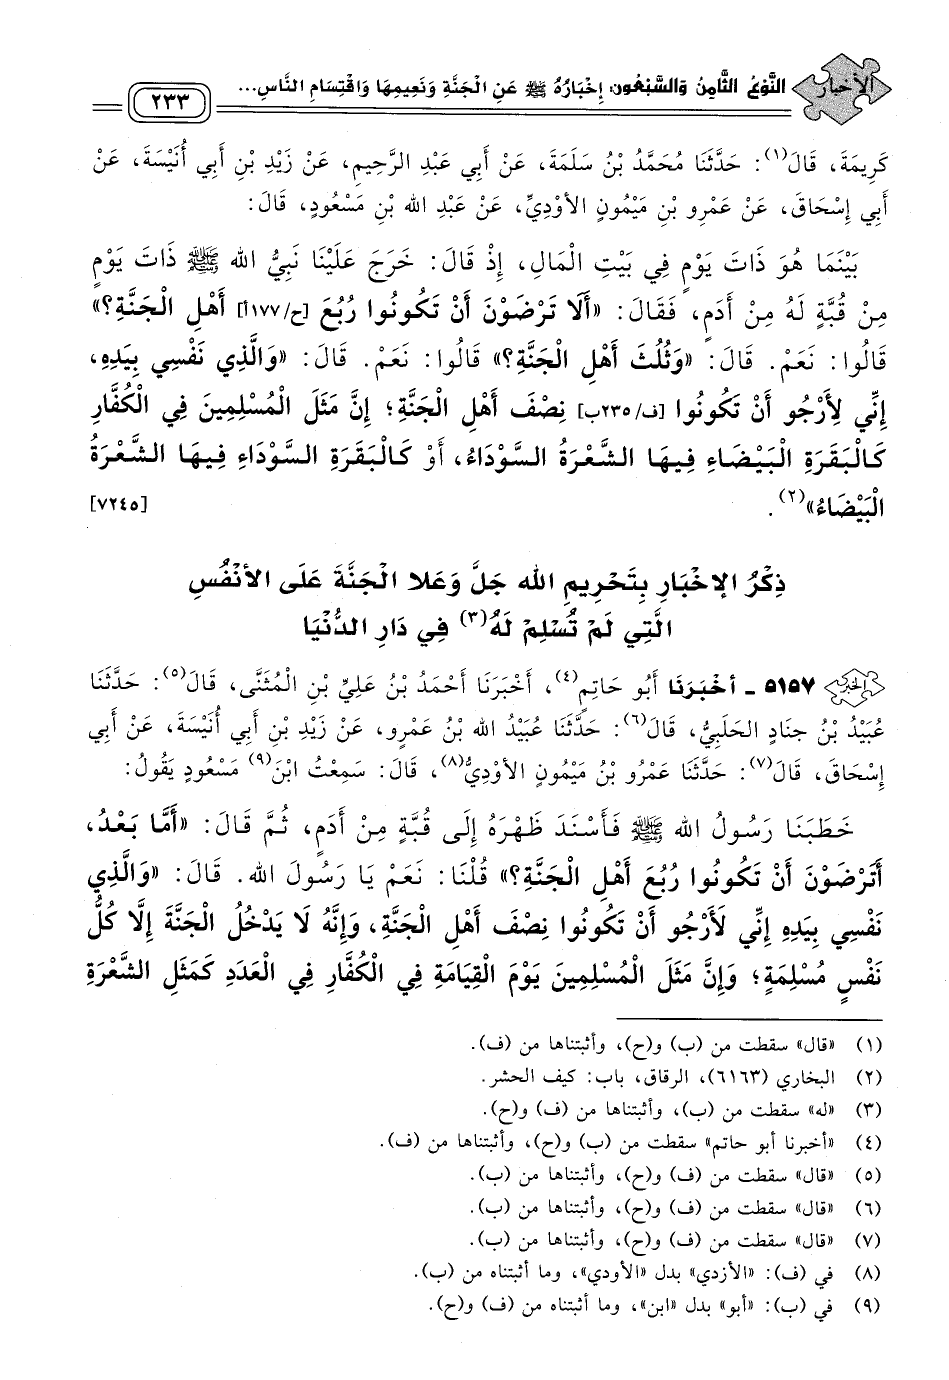 الأخبار
النَّوْعُ الثَّامِنُ وَالسَّبْعُونَ: إِخْبَارُهُ ﷺ عَنِ الْجَنَّةِ وَنَعِيمِهَا وَاقْتِسَامِ النَّاسِ...
٢٣٣
كَرِيمَةَ، قَالَ(١): حَدَّثَنَا مُحَمَّدُ بْنُ سَلَمَةَ، عَنْ أَبِي عَبْدِ الرَّحِيمِ، عَنْ زَيْدِ بْنِ أَبِي أُنَيْسَةَ، عَنْ
أَبِي إِسْحَاقَ، عَنْ عَمْرِو بْنِ مَيْمُونٍ الأَوْدِيِّ، عَنْ عَبْدِ الله بْنِ مَسْعُودٍ، قَالَ:
بَيْنَمَا هُوَ ذَاتَ يَوْمٍ فِي بَيْتِ الْمَالِ، إِذْ قَالَ: خَرَجَ عَلَيْنَا نَبِيُّ الله ﷺ ذَاتَ يَوْمٍ
مِنْ قُبَّةٍ لَهُ مِنْ أَدَمٍ، فَقَالَ: «أَلَا تَرْضَوْنَ أَنْ تَكُونُوا رُبُعَ [ح/١٧٧أ] أَهْلِ الْجَنَّةِ؟»
قَالُوا: نَعَمْ. قَالَ: «وَثُلُثَ أَهْلِ الْجَنَّةِ؟» قَالُوا: نَعَمْ. قَالَ: «وَالَّذِي نَفْسِي بِيَدِهِ،
إِنِّي لِأَرْجُو أَنْ تَكُونُوا [ف/٢٣٥ب] نِصْفَ أَهْلِ الْجَنَّةِ؛ إِنَّ مَثَلَ الْمُسْلِمِينَ فِي الْكُفَّارِ
كَالْبَقَرَةِ الْبَيْضَاءِ فِيهَا الشَّعْرَةُ السَّوْدَاءُ، أَوْ كَالْبَقَرَةِ السَّوْدَاءِ فِيهَا الشَّعْرَةُ
الْبَيْضَاءُ»(٢). [٧٢٤٥]
ذِكْرُ الإِخْبَارِ بِتَحْرِيمِ الله جَلَّ وَعَلا الْجَنَّةَ عَلَى الأَنْفُسِ
الَّتِي لَمْ تُسْلِمْ لَهُ(٣) فِي دَارِ الدُّنْيَا
٥١٥٧ - أَخْبَرَنَا أَبُو حَاتِمٍ(٤)، أَخْبَرَنَا أَحْمَدُ بْنُ عَلِيِّ بْنِ الْمُثَنَّى، قَالَ(٥): حَدَّثَنَا
عُبَيْدُ بْنُ جنادٍ الحَلَبِيُّ، قَالَ(٦): حَدَّثَنَا عُبَيْدُ الله بْنُ عَمْرٍو، عَنْ زَيْدِ بْنِ أَبِي أُنَيْسَةَ، عَنْ أَبِي
إِسْحَاقَ، قَالَ(٧): حَدَّثَنَا عَمْرُو بْنُ مَيْمُونٍ الأَوْدِيُّ(٨)، قَالَ: سَمِعْتُ ابْنَ(٩) مَسْعُودٍ يَقُولُ:
خَطَبَنَا رَسُولُ الله ﷺ فَأَسْنَدَ ظَهْرَهُ إِلَى قُبَّةٍ مِنْ أَدَمٍ، ثُمَّ قَالَ: «أَمَّا بَعْدُ،
أَتَرْضَوْنَ أَنْ تَكُونُوا رُبُعَ أَهْلِ الْجَنَّةِ؟» قُلْنَا: نَعَمْ يَا رَسُولَ الله. قَالَ: «وَالَّذِي
نَفْسِي بِيَدِهِ إِنِّي لَأَرْجُو أَنْ تَكُونُوا نِصْفَ أَهْلِ الْجَنَّةِ، وَإِنَّهُ لَا يَدْخُلُ الْجَنَّةَ إِلَّا كُلُّ
نَفْسٍ مُسْلِمَةٍ؛ وَإِنَّ مَثَلَ الْمُسْلِمِينَ يَوْمَ الْقِيَامَةِ فِي الْكُفَّارِ فِي الْعَدَدِ كَمَثَلِ الشَّعْرَةِ
(١) «قال» سقطت من (ب) و(ح)، وأثبتناها من (ف).
(٢) البخاري (٦١٦٣)، الرقاق، باب: كيف الحشر.
(٣) «له» سقطت من (ب)، وأثبتناها من (ف) و(ح).
(٤) «أخبرنا أبو حاتم» سقطت من (ب) و(ح)، وأثبتناها من (ف).
(٥) «قال» سقطت من (ف) و(ح)، وأثبتناها من (ب).
(٦) «قال» سقطت من (ف) و(ح)، وأثبتناها من (ب).
(٧) «قال» سقطت من (ف) و(ح)، وأثبتناها من (ب).
(٨) في (ف): «الأزدي» بدل «الأودي»، وما أثبتناه من (ب).
(٩) في (ب): «أبو» بدل «ابن»، وما أثبتناه من (ف) و(ح).